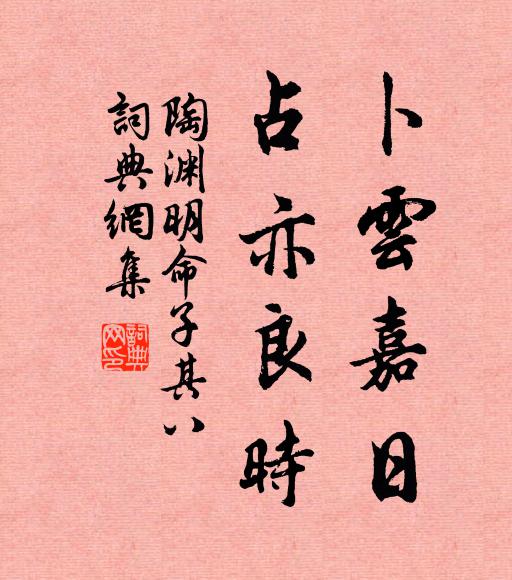 卜雲嘉日
占亦良時
陶渊明命子其八
詞典網集
詞典网印